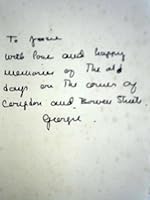 To
with love and happy
memories of The old
days on The corner of
and Bower Streets.
George.